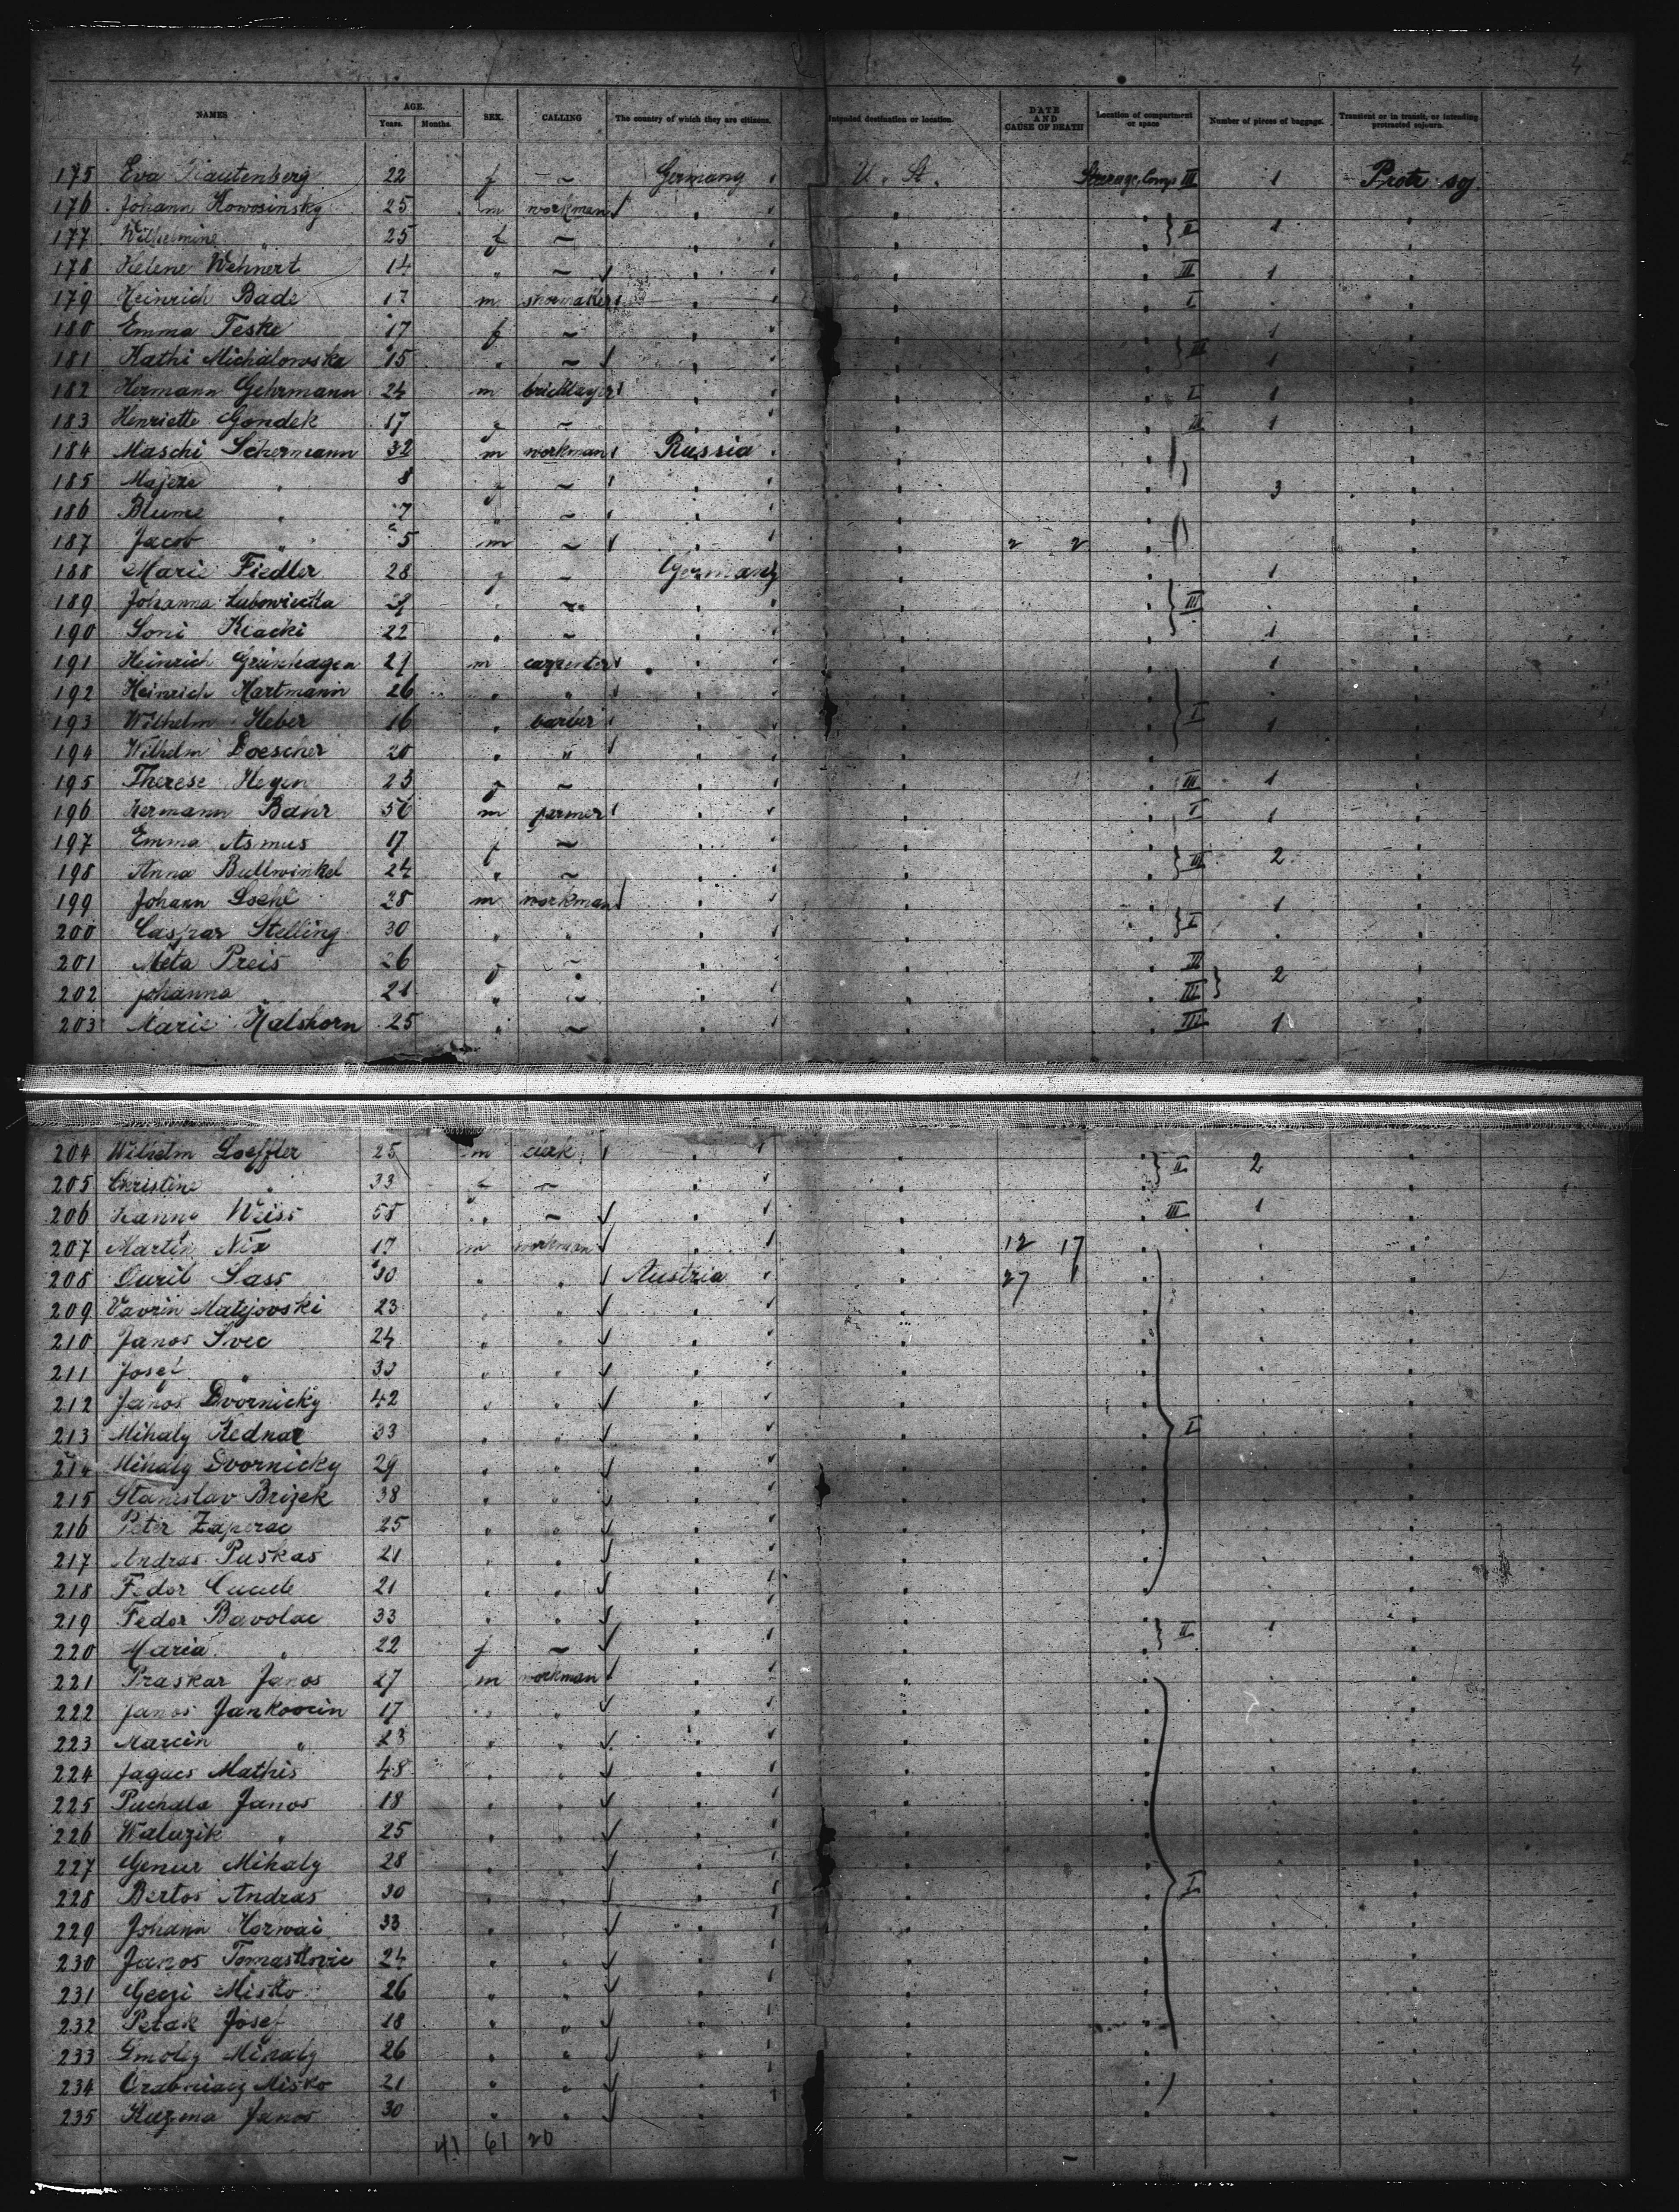 4
NAMES AGE. Years. Months. SEX. CALLING The country of which they are citizens. Intended destination or location. DATE AND CAUSE OF DEATH Location of compartment or space Number of pieces of baggage. Transient or in transit, or intending protracted sojourn.
175 Eva Rautenberg 22 f ~ Germany U. St. Steerage Comp III 1 Protr. soj.
176 Johann 25 m workman
177 Wilhelmine " 25 f ~ } II 1
178 Helene Wehnert 14 " ~ III 1
179 Heinrich Bade 17 m shoemaker I
180 Emma Teske 17 f ~ 1
181 Kathi Michalowska 15 " ~ } III 1
182 Hermann Gehrmann 24 m bricklayer I 1
183 Henriette Gondek 17 f ~ III 1
184 Maschi Schermann 32 m workman Russia
185 Majere " 8 f ~ 3
186 Blume " 7 " ~
187 Jacob " 5 m ~ 2 2
188 Marie Fiedler 28 f ~ Germany 1
189 Johanna " ~ } III "
190 Kiacki 22 " ~ 1
191 Heinrich Grünhagen 27 m carpenter 1
192 Heinrich Hartmann 26 " "
193 Wilhelm Heber 16 " barber } I 1
194 Wilhelm Doescher 20 " "
195 Therese Hegen 25 f ~ III 1
196 Hermann Bahr 56 m farmer I 1
197 Emma Asmus 17 f ~
198 Anna Bullwinkel 24 " ~ } III 2
199 Johann 28 m workman 1
200 Caspar Stelling 30 " " } I "
201 Meta Preis 26 f ~ III
202 Johanna 21 " ~ III } 2
203 Marie Kalshorn 25 " ~ III 1
204 Wilhelm Loeffler 25 m clerk
205 Christine " 33 f ~ } II 2
206 Weiss 55 " ~ III 1
207 Martin Nix 17 m workman 12 17
208 Sass 30 " " Austria 27 1
209 Vavrin Matejovski 23 " "
210 Janos Svec 24 " "
211 Josef " 30 " "
212 Janos Dvornicky 42 " "
213 Mihaly Kednar 33 " " } I
214 Mihaly Dvornicky 29 " "
215 Stanislav Brizek 38 " "
216 Peter Zaperac 25 " "
217 Andras Puskas 21 " "
218 Fedor 21 " "
219 Fedor Bavolac 33 " " } II 1
220 Maria " 22 f ~
221 Praskar Janos 27 m workman
222 Janos 17 " "
223 Marcin " 23 " "
224 Mathis 48 " "
225 Puchala Janos 18 " "
226 Waluzik " 25 " "
227 Mihaly 28 " "
228 Bertos Andras 30 " " } I
229 Johann 33 " "
230 Janos 24 " "
231 Misko 26 " "
232 Petak Josef 18 " "
233 Mihaly 26 " "
234 Misko 21 " "
235 Kuzma Janos 30 " "
41 61 20